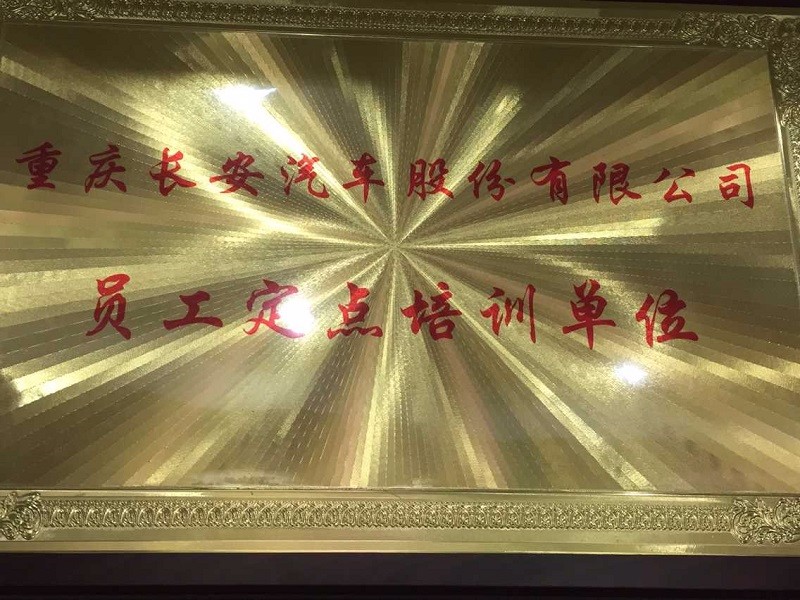 重庆长安汽车股份有限公司
员工定点培训单位